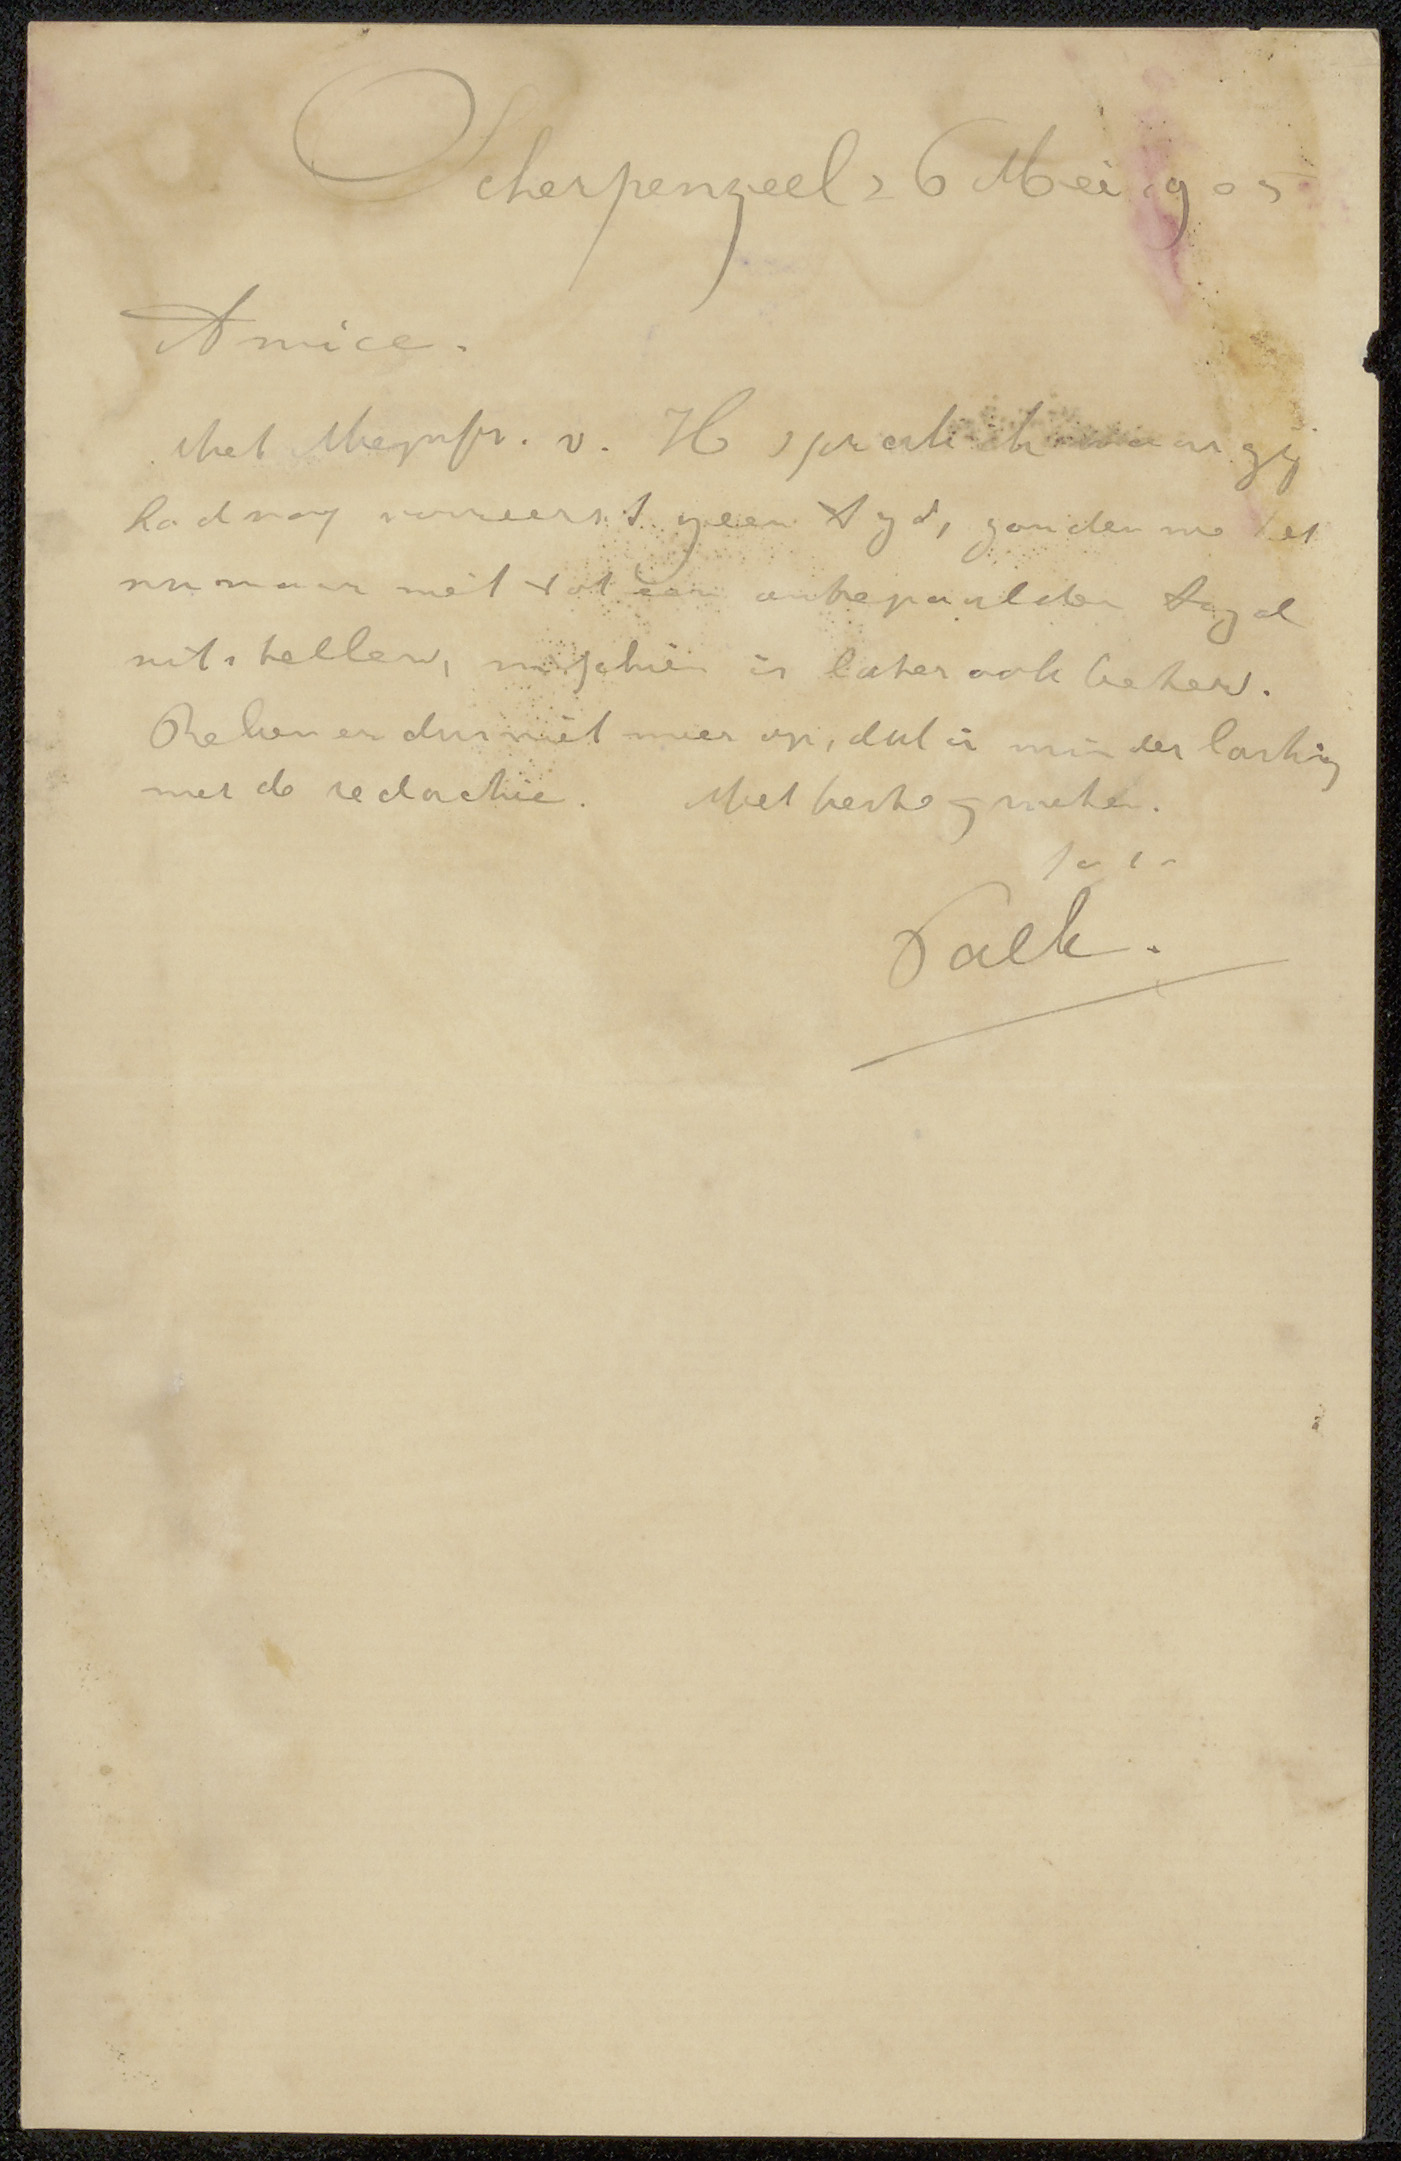 Scherpenzeel 26 Mei 1905
Amice.
Met Mejufr. v. H sprak ik maar zij
had nog vooreerst geen tyd, zouden we het
nu maar niet tot een onbepaalden tyd
uitstellen, misschien is later ook beter.
Reken er dus niet meer op, dat is minder lastig
met de redactie. Met beste groeten.
tt
Valk.